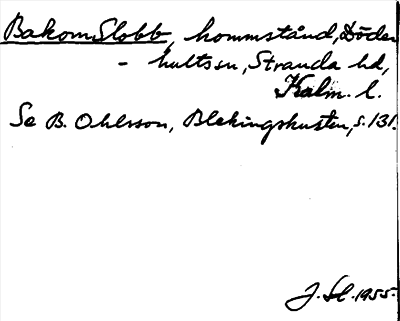 BakomSlobb, kommstånd, Döder
- hultssn, Stranda hd,
Kalm. l.
Se B. Ohlsson, Blekingskusten, s. 131.
J. Sl. 1955.